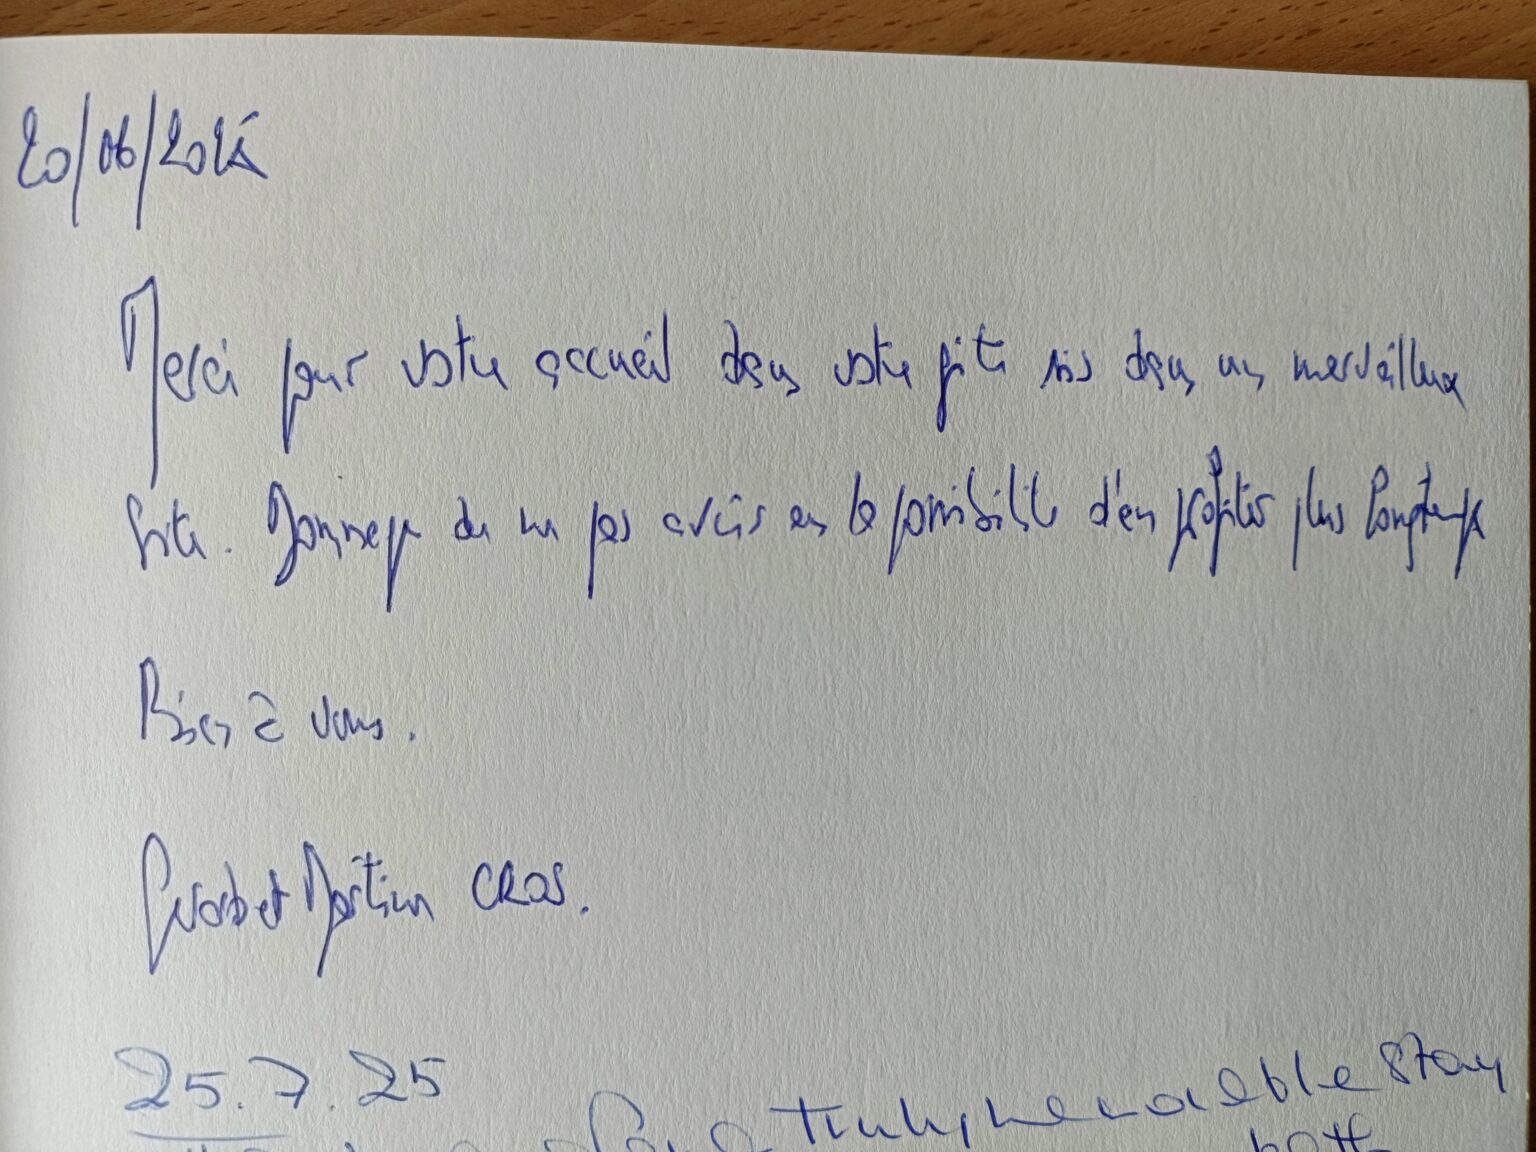 20/06/2025
Merci pour votre accueil dans votre gite sis dans un merveilleux
site. Dommage de ne pas avoir eu la possibilité d'en profiter plus longtemps
Bien à vous.
Martin CROS.
25.7.25
a truly memorable stay
both